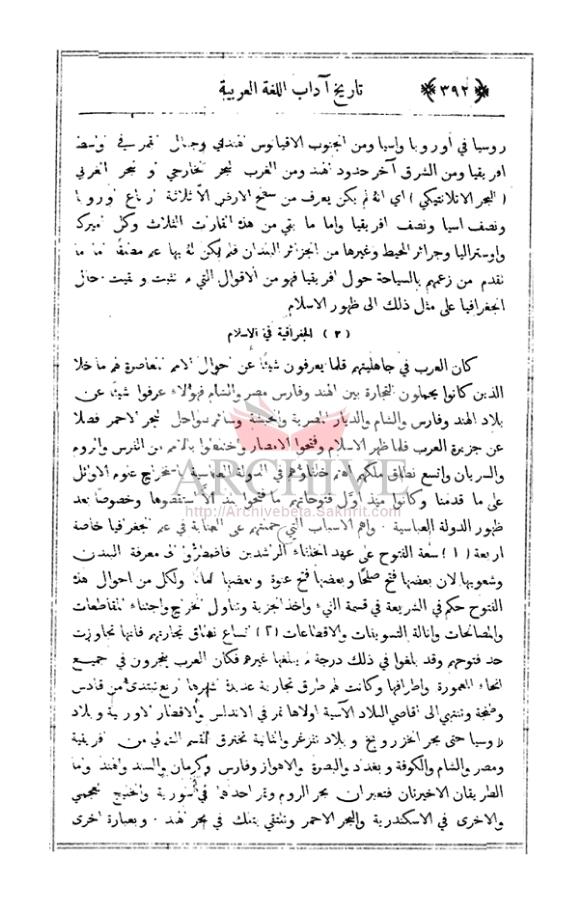 ﴿٣٩٢﴾ تاريخ آداب اللغة العربية
روسيا في اوروبا واسيا ومن الجنوب الاقيانوس الهندي وجبال القمر في اواسط
افريقيا ومن الشرق آخر حدود الهند ومن الغرب البحر الخارجي او البحر الغربي
(البحر الاتلانتيكي) اي انه لم يكن يعرف من سطح الارض الا ثلاثة ارباع اوروبا
ونصف اسيا ونصف افريقيا واما ما بقي من هذه القارات الثلاث وكل اميركا
واوستراليا وجزائر المحيط وغيرها من الجزائر البلدان فلم يكن له بها علم مطلقًا اما ما
تقدم من زعمهم بالسياحة حول افريقيا فهو من الاقوال التي لم تثبت وبقيت حال
الجغرافيا على مثل ذلك الى ظهور الاسلام
(٢) الجغرافية في الاسلام
كان العرب في جاهليتهم قلما يعرفون شيئًا عن احوال الامم المعاصرة لهم ما خلا
الذين كانوا يحملون التجارة بين الهند وفارس مصر والشام فهؤلاء عرفوا شيئًا عن
بلاد الهند وفارس والشام والديار المصرية والحبشة وسائر سواحل البحر الاحمر فضلا
عن جزيرة العرب فلما ظهر الاسلام وفتحوا الامصار واختلطوا بالامم من الفرس والروم
والسريان واتسع نطاق ملكهم اهتم خلفاؤهم في الدولة العباسية باستخراج علوم الاوائل
على ما قدمنا وكانوا منذ اول فتوحاتهم ما فتحوا بلدًا الا استقصوها وخصوصا بعد
ARCHIVE
http://Archivebeta.Sakhrit.com
ظهور الدولة العباسية . واهم الاسباب التي حملتهم على العناية في علم الجغرافيا خاصة
اربعة (١) سعة الفتوح على عهد الخلفاء الراشدين فاضطروا الى معرفة البلدان
وشعوبها لان بعضها فتح صلحًا وبعضها فتح عنوة وبعضها امانًا ولكل من احوال هذه
الفتوح حكم في الشريعة في قسمة الفيء واخذ الجزية وتناول الخراج واجتناء المقاطعات
والمصالحات وانالة التسويغات والاقطاعات (٢) اتساع نطاق تجارتهم فانها تجاوزت
حد فتوحهم وقد بلغوا في ذلك درجة لم يبلغها غيرهم فكان العرب يتجرون في جميع
انحاء المعمورة واطرافها وكانت لهم طرق تجارية عديدة اشهرها اربع تبتدئ من قادس
وطنجة وتنتهي الى اقاصي البلاد الآسية اولاها تمر في الاندلس والاقطار الاوربية وبلاد
روسيا حتى بحر الخزر وبلخ وبلاد تغزغر والثانية تخترق القسم الشمالي من افريقية
ومصر والشام والكوفة وبغداد والبصرة والاهواز وفارس وكرمان والسند والهند واما
الطريقان الاخيرتان فتعبران بحر الروم وتمر احداهما في اسورية والخليج العجمي
والاخرى في الاسكندرية والبحر الاحمر وتلتقي بتلك في بحر الهند . وبعبارة اخرى